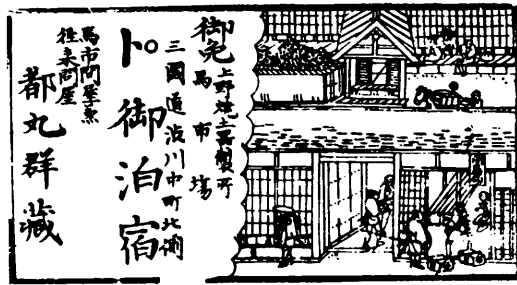 御免 上野焼土器製所
馬市場
三國道渋川中町北側
御泊宿
馬市問屋兼
往来問屋
都丸群藏